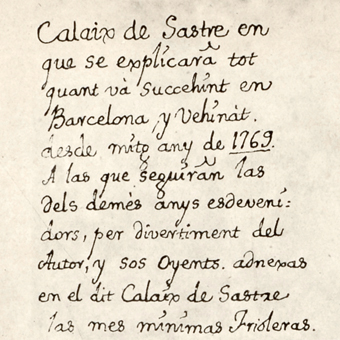 Calaix de Sastre en
que se explicarà tot
quant và succehint en
Barcelona, y Vehinàt.
desde mitg any de 1769.
A las que seguiràn las
dels demès anys esdeveni:
dors, per divertiment del
Autor, y sos Oyents. adnexas
en el dit Calaix de Sastre
las mes minimas frioleras.